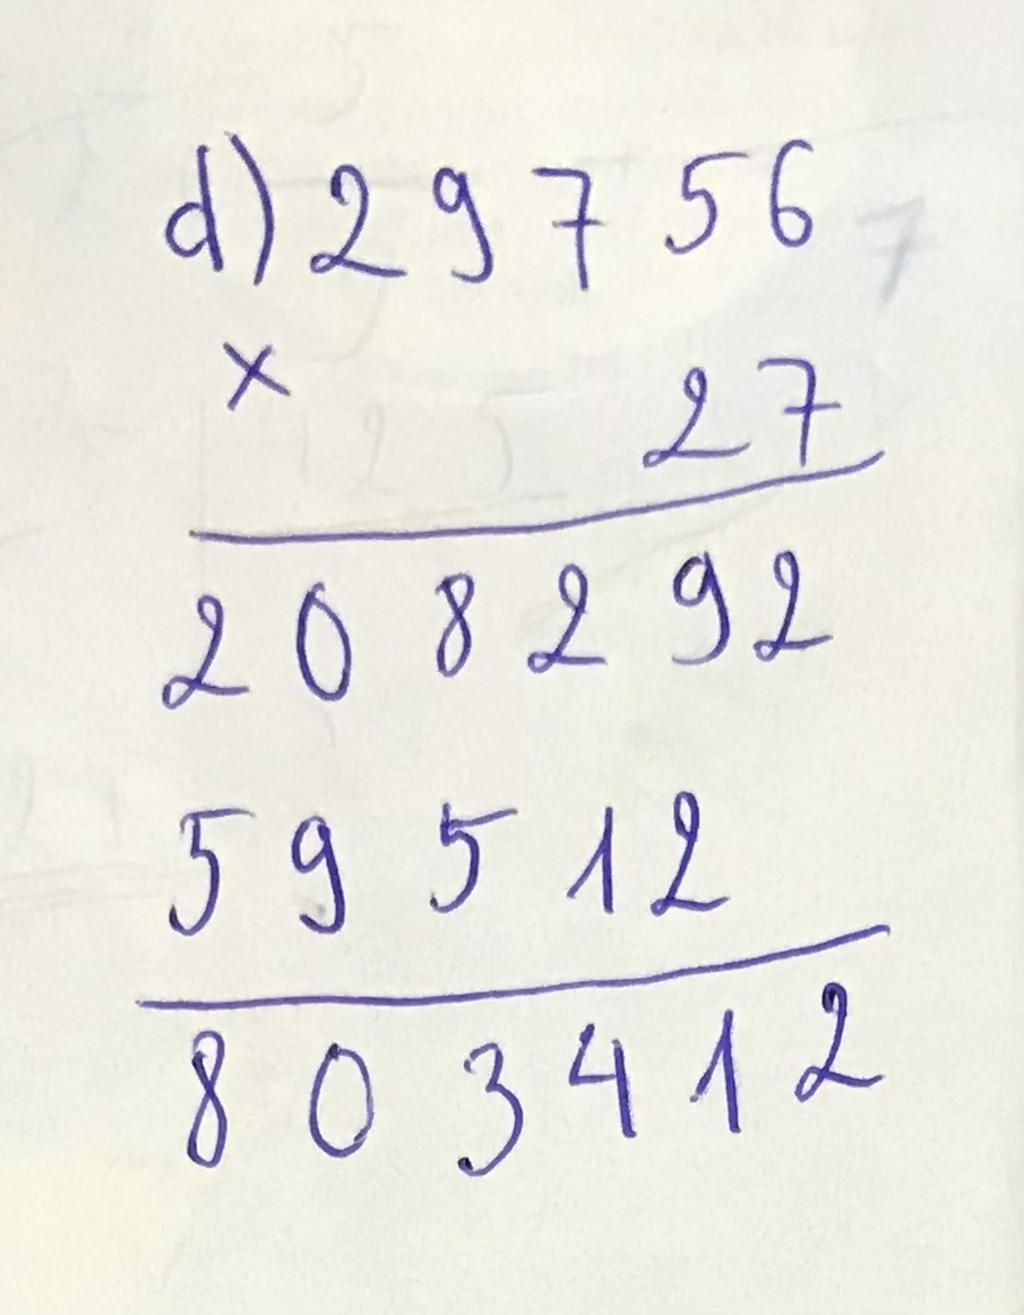 d) 29756
x 27
208292
59512
803412